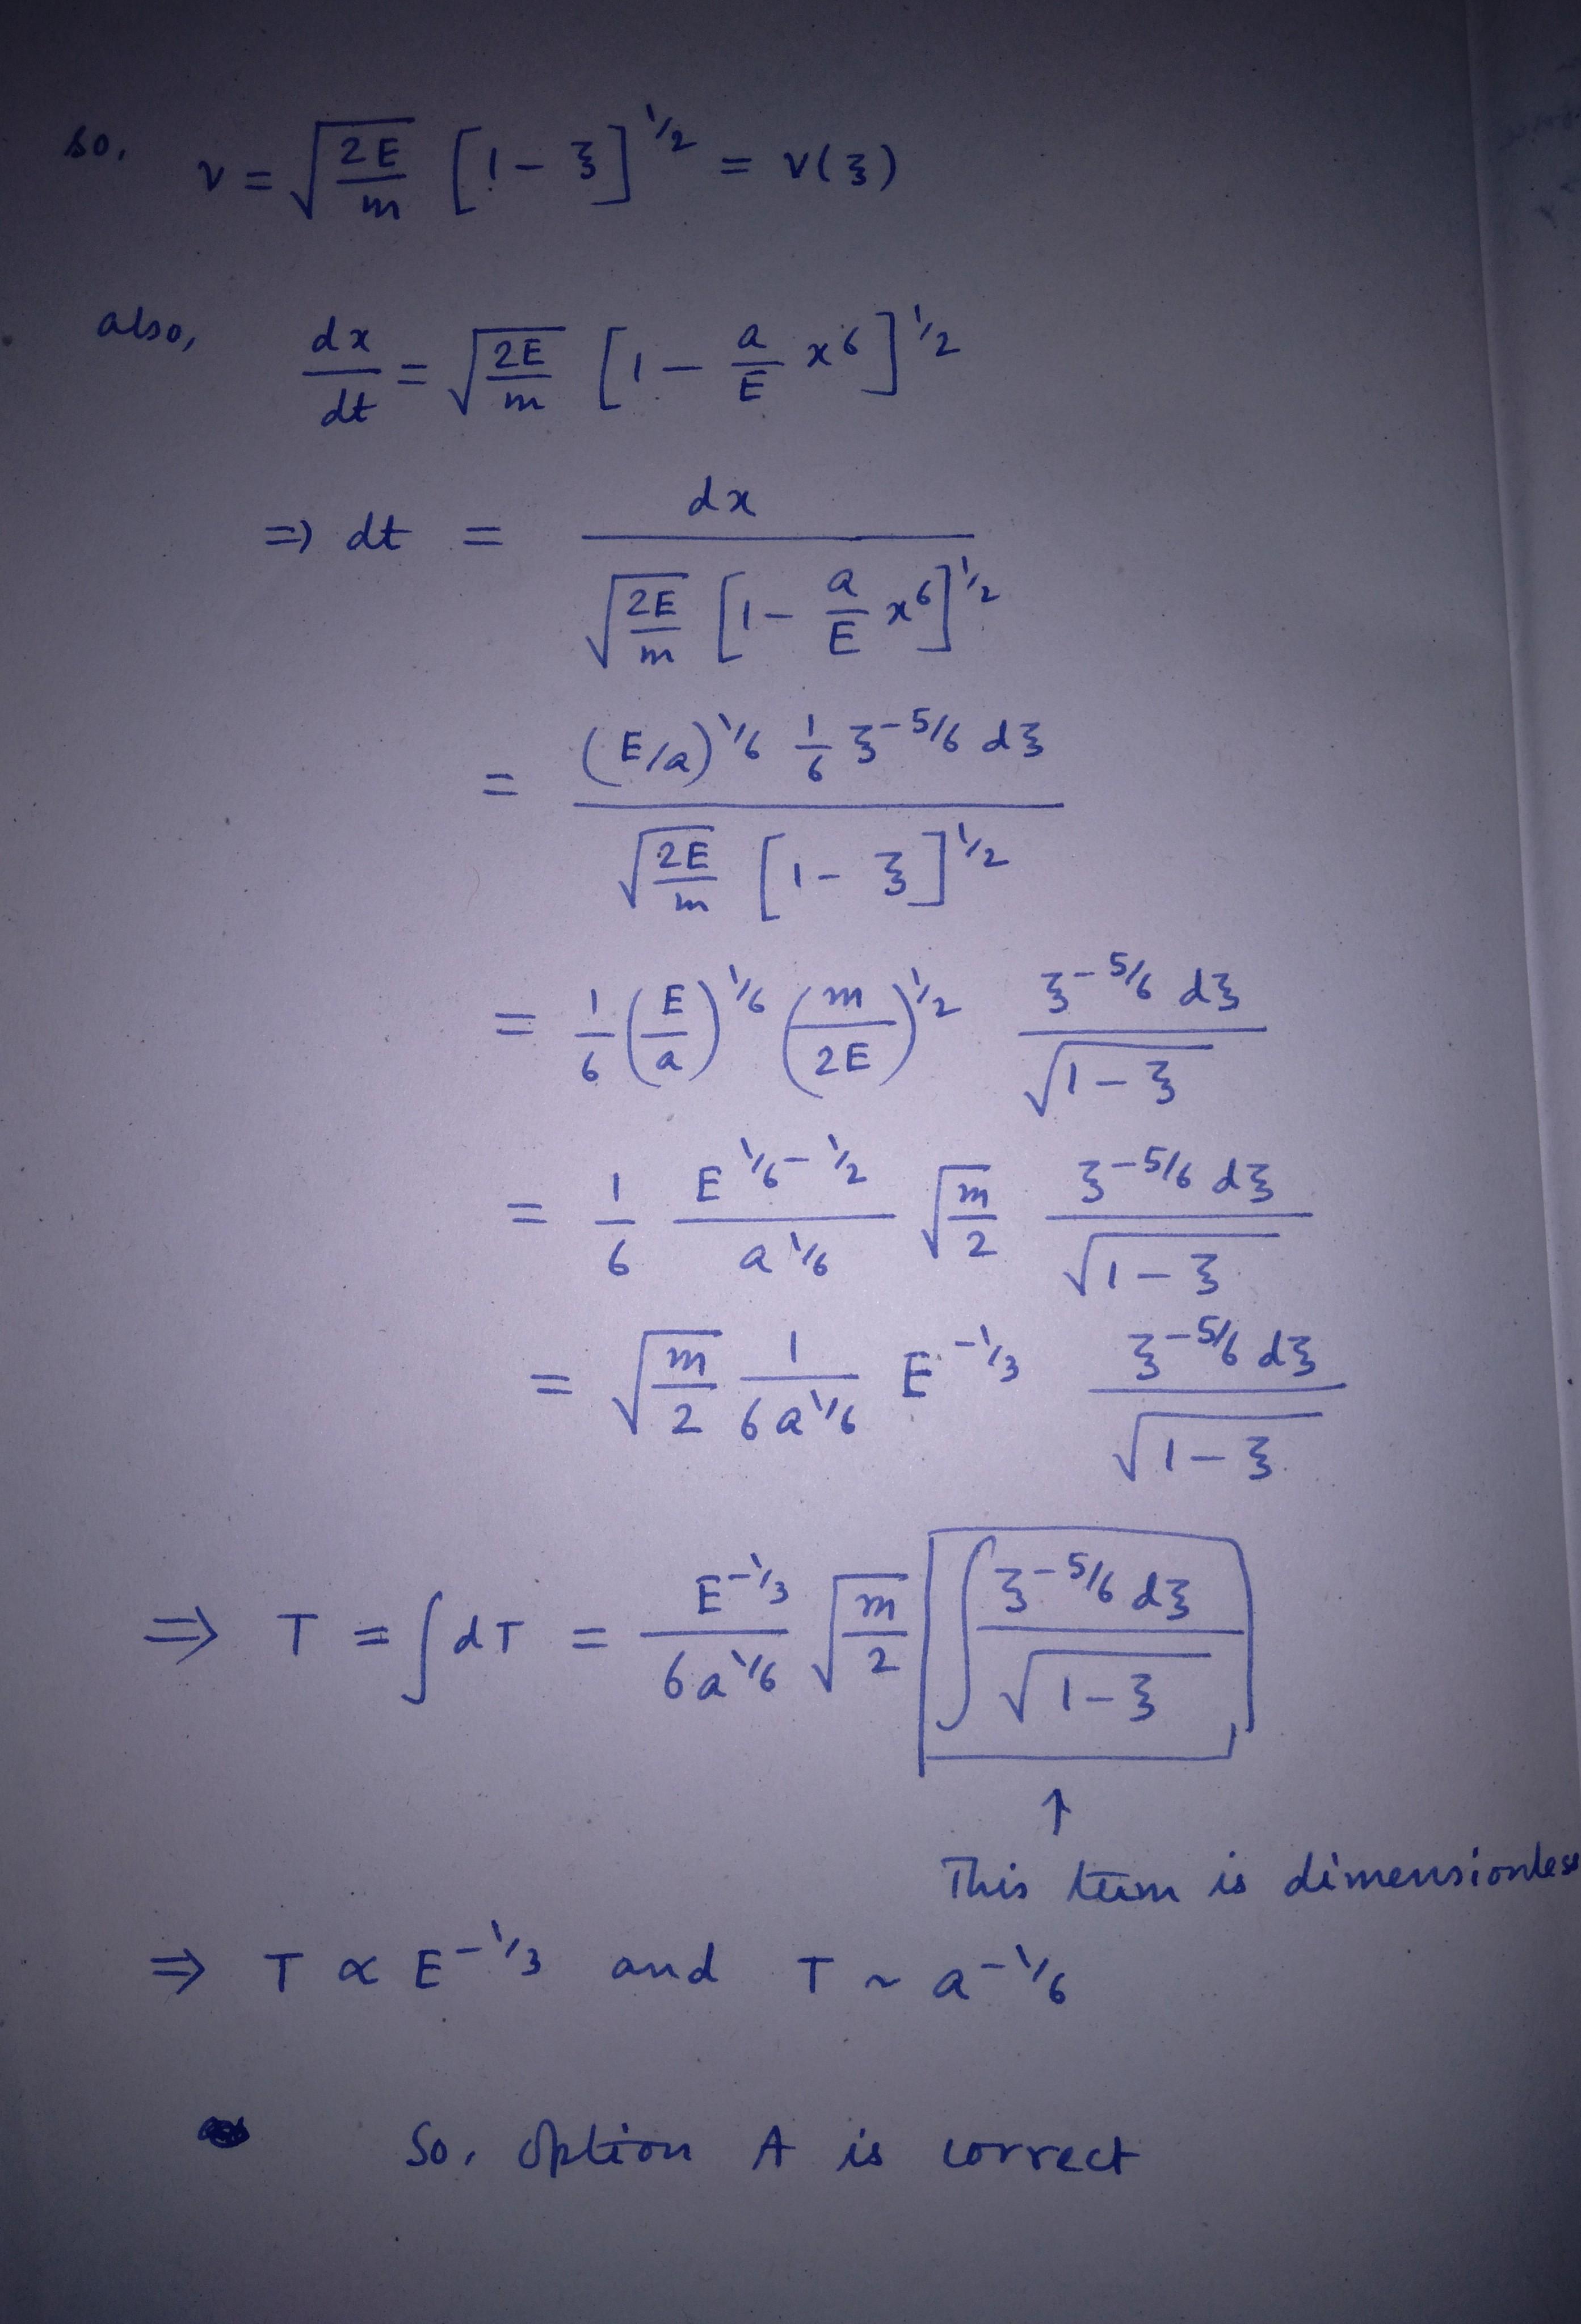 so, v = √(2E/m) [1 - ξ]^1/2 = v(ξ)
also, dx/dt = √(2E/m) [1 - a/E x^6]^1/2
⇒ dt = dx / √(2E/m) [1 - a/E x^6]^1/2
= (E/a)^1/6 1/6 ξ^-5/6 dξ / √(2E/m) [1 - ξ]^1/2
= 1/6 (E/a)^1/6 (m/2E)^1/2 ξ^-5/6 dξ / √(1 - ξ)
= 1/6 E^1/6-1/2 / a^1/6 √(m/2) ξ^-5/6 dξ / √(1 - ξ)
= √(m/2) 1/6a^1/6 E^-1/3 ξ^-5/6 dξ / √(1 - ξ)
⇒ T = ∫dT = E^-1/3 / 6a^1/6 √(m/2) ∫ ξ^-5/6 dξ / √(1-ξ)
↑
This term is dimensionless
⇒ T ∝ E^-1/3 and T ~ a^-1/6
So, option A is correct